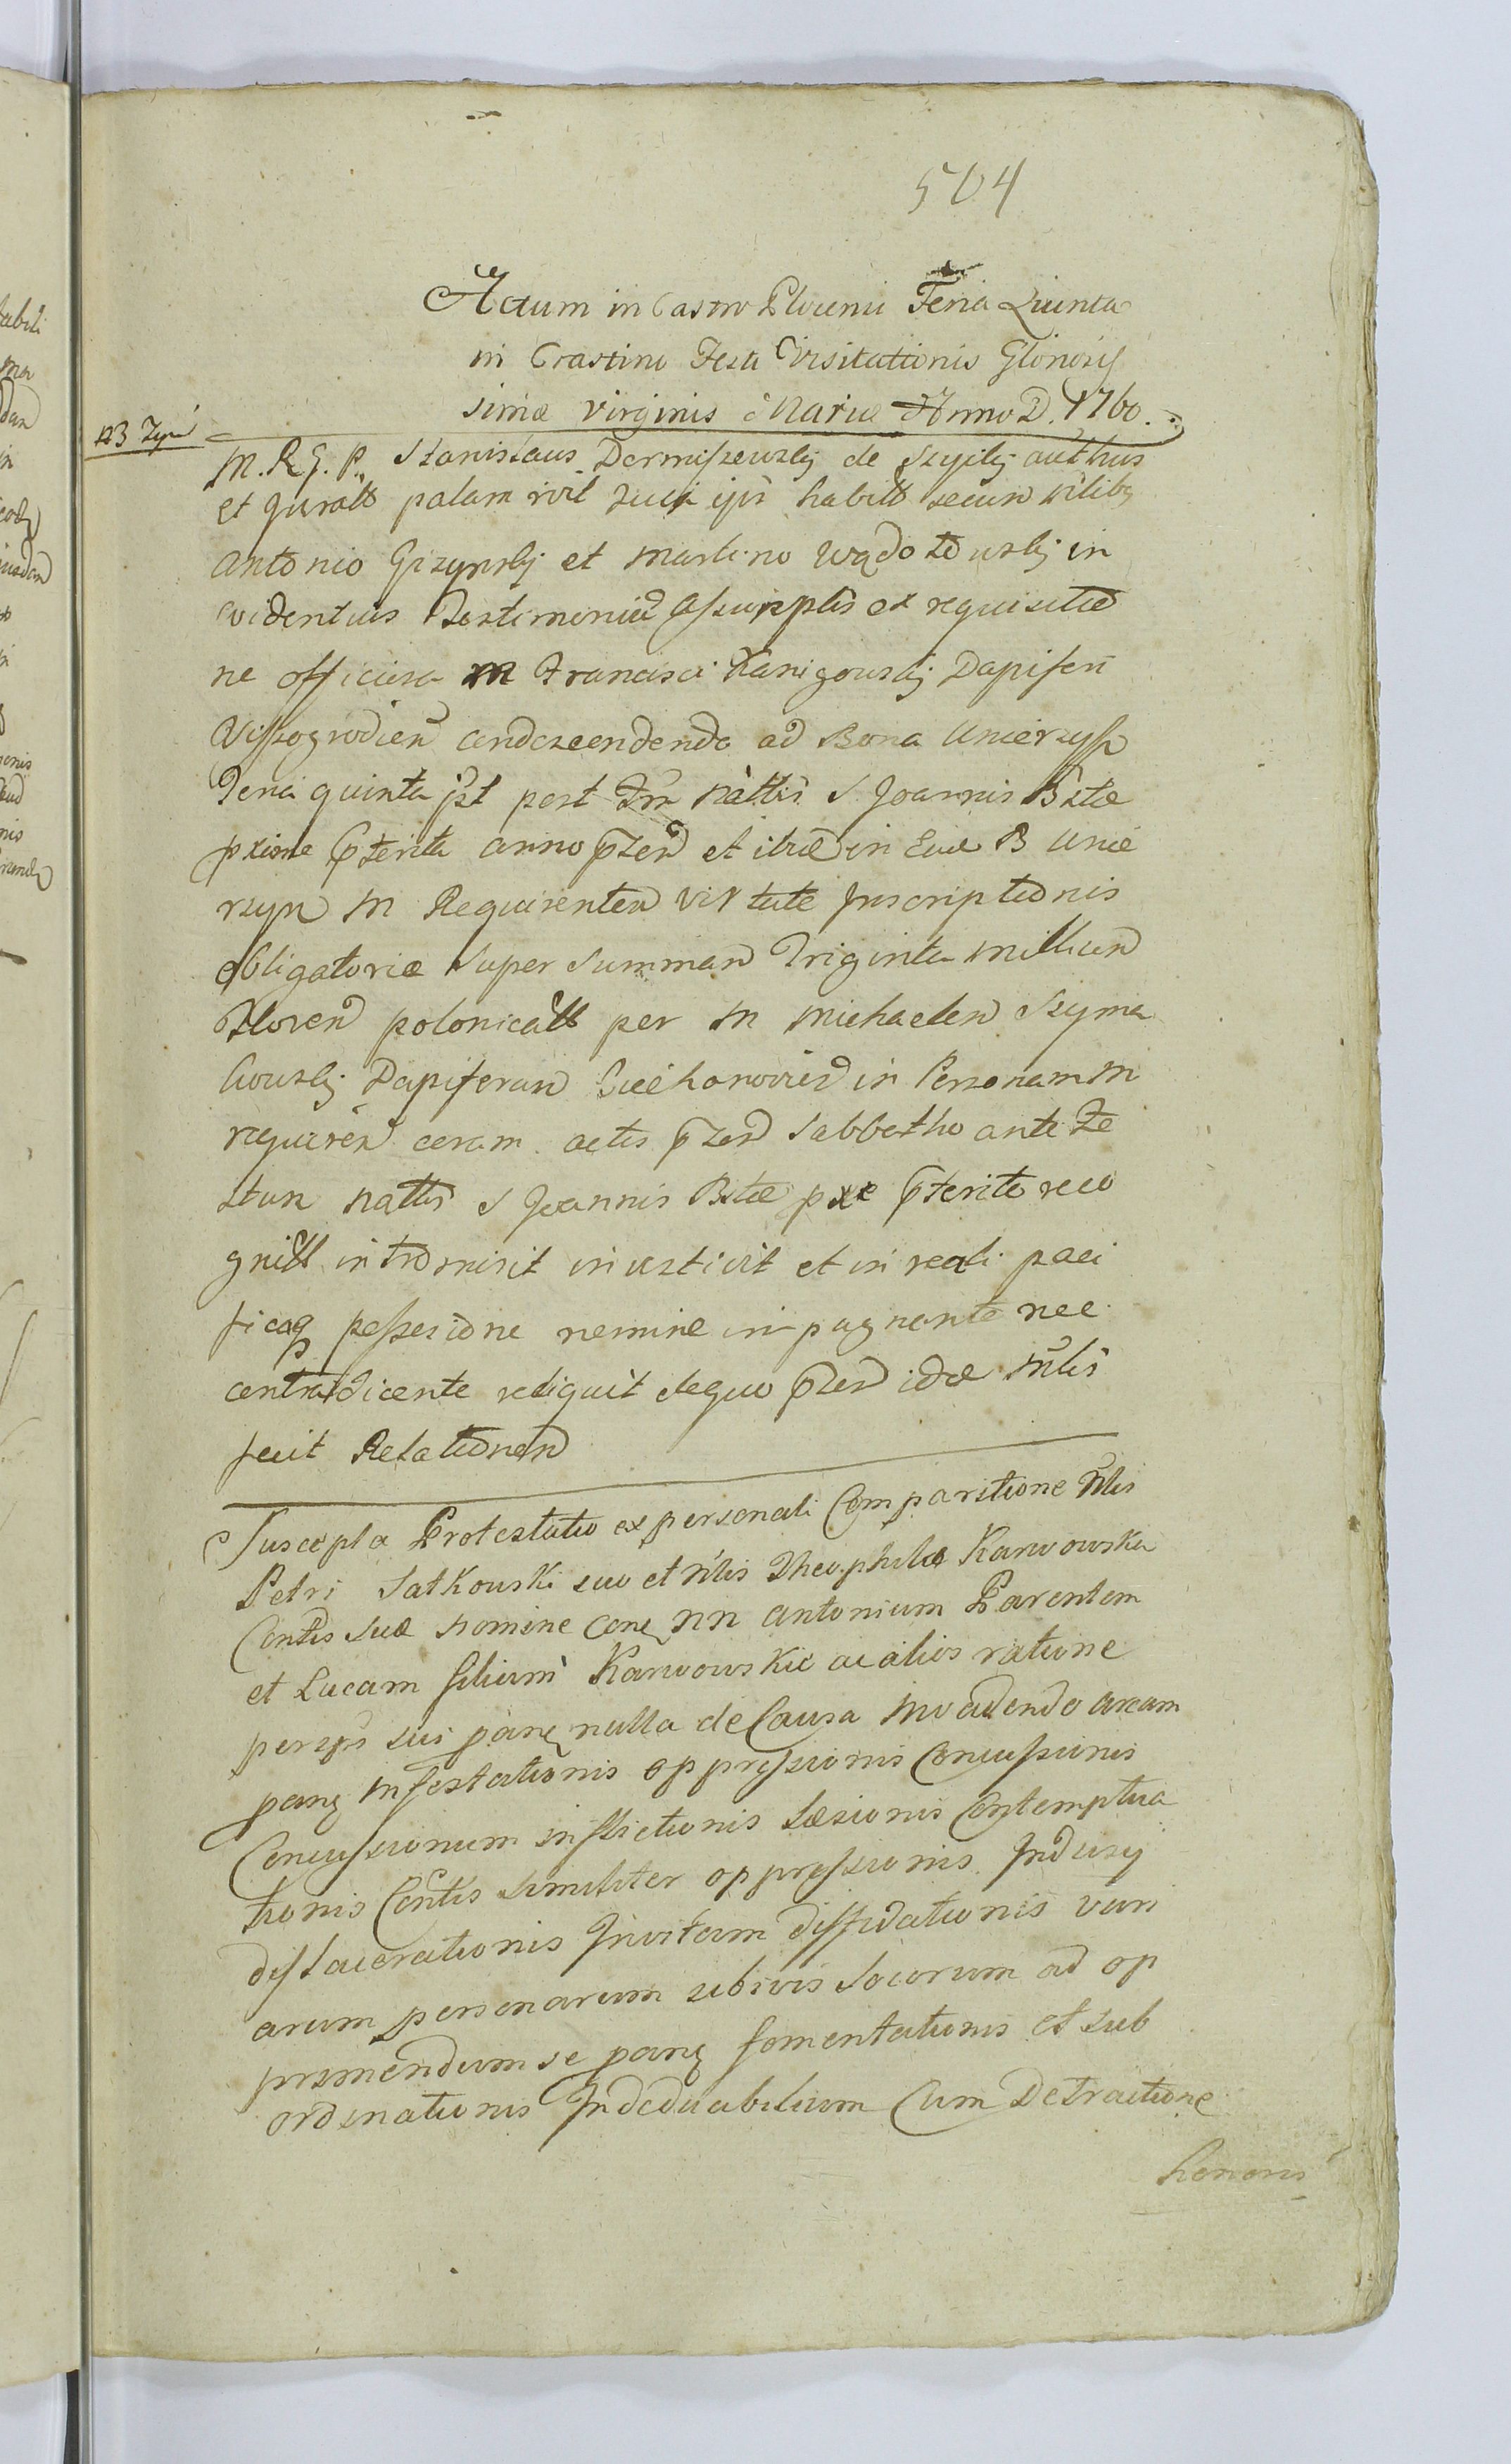 504
Actum in Castro Plocensi Feria Quinta
in Crastino Festi Visitationis Gloriosis
simæ Virginis Mariæ Anno D. 1760.
M. R. G. P. Stanislaus Dermiszewskj de Szyilj authus
et Juratt palam
Antonio Gizynskj et Martino Wądołowskj in
evidentius Testimoniū assumptis ex requisitio
ne officiosa M Francisci Kanigowskj Dapiferi
Vissogrodien condescendendo ad Bona Unierzysz
Feria quinta post Nattis S. Joannis Bttæ
pxime pterita anno et in B Unie
rzyn M Requirentem virtute Inscriptionis
obligatoriæ super summam Triginta millium
Floren polonicatt per M Michaelem Szyma
kowskj Dapiferum Ciechonovien in Personam M
requiren coram actis Sabbatho ante Fe
stum Nattis S Joannis Bttæ pxe pterito reco
gnitt intromisit investivit et in reali paci
ficaq possesione nemine impugnante nec
contradicente reliquit dequo idæ Mtlis
fecit Relationem
Suscepta Protestatio ex personali Comparitione Nlis
Petri Satkowski suo et Nlis Theophilæ Karwowska
Contis suæ nomine Cone NN Antonium Parentem
et Lucam filium Karwowskie ac alios ratione
per sui pane nulla de Causa Invadendo aream
pane Infestationis oppressionis Concussionis
Concussionum inflictionis Læsionis Contemptua
tionis Contis similiter oppressionis Indusij
dislacerationis Invitam diffidationis vari
arum personarum ubivis Locorum ad op
primendum se pane fomentationis et sub
ordinationis Indeduabilium Cum Detractione
honoris